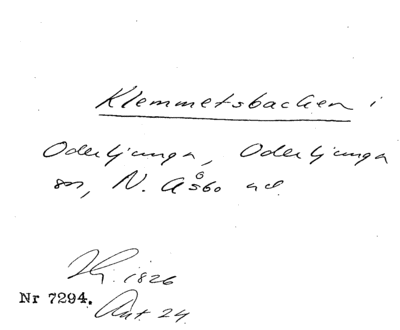 Klemmetsbacken i
Oderljunga, Oderljunga
sn, N. Åsbo hd.
1826
Nr 7294. Ant. 24